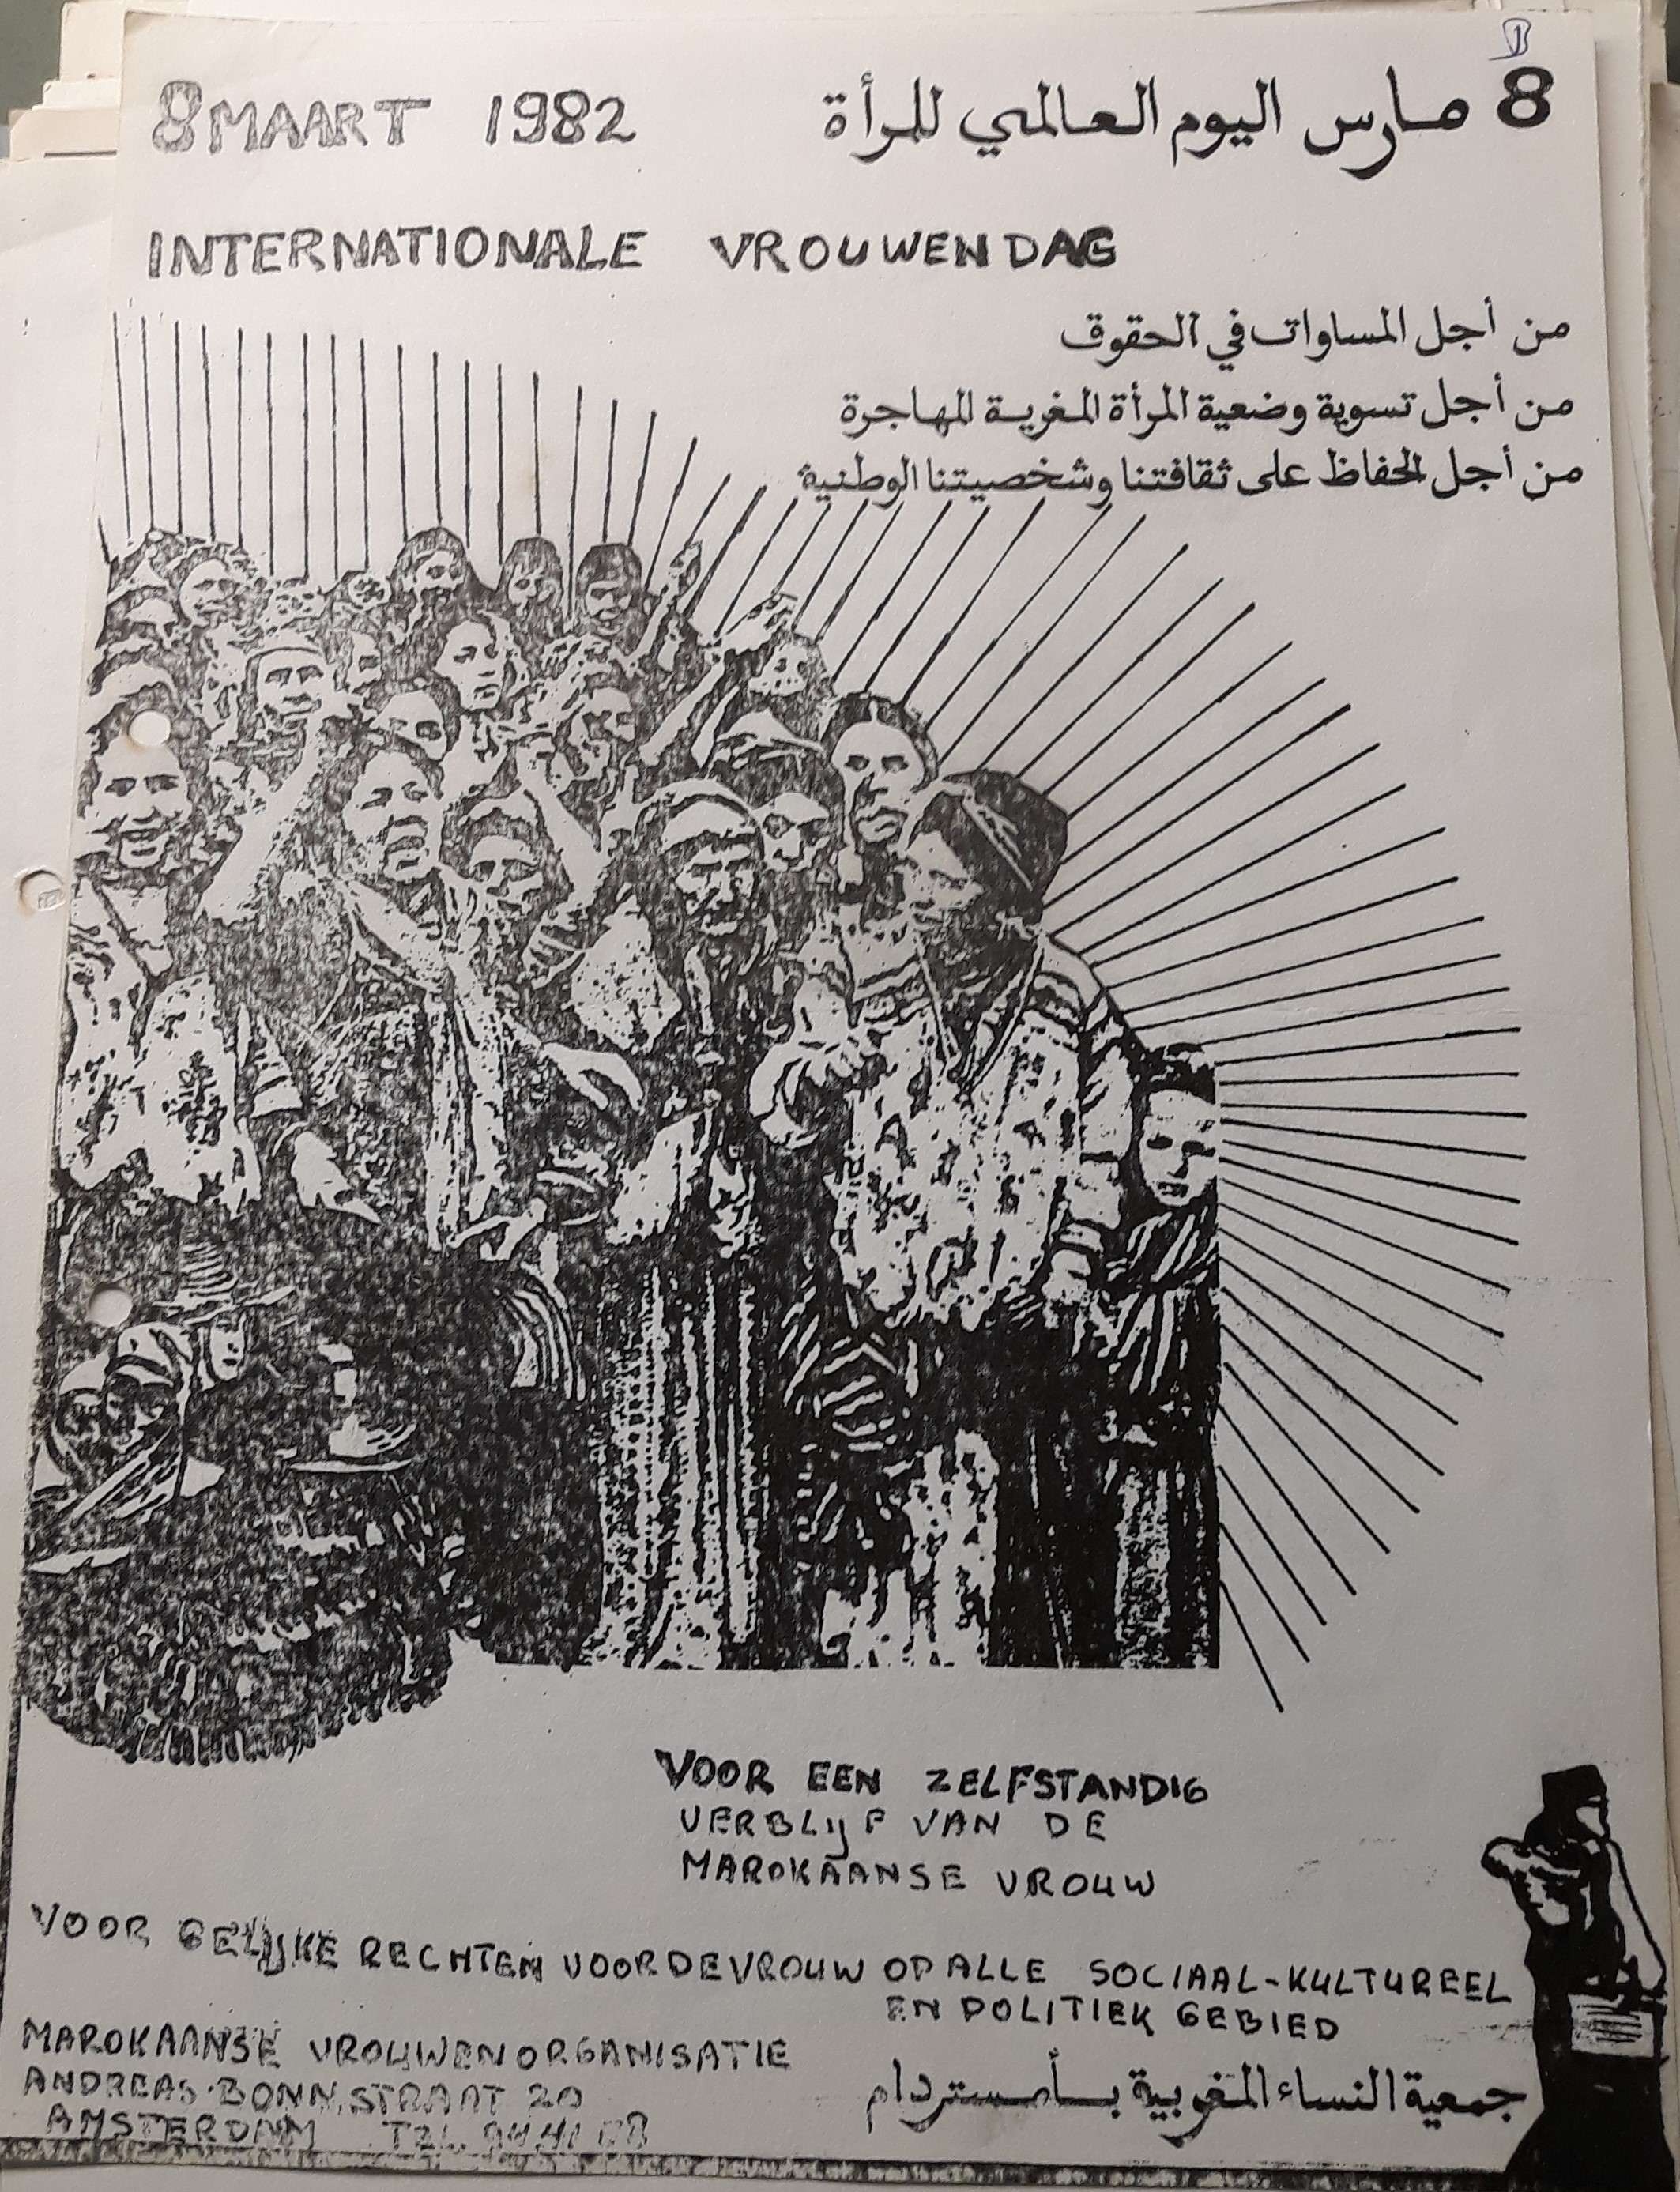 8 MAART 1982
8 مارس اليوم العالمي للمرأة
INTERNATIONALE VROUWENDAG
من أجل المساوات في الحقوق
من أجل تسوية وضعية المرأة المغربية المهاجرة
من أجل الحفاظ على ثقافتنا وشخصيتنا الوطنية
VOOR EEN ZELFSTANDIG
VERBLIJF VAN DE
MAROKAANSE VROUW
VOOR GELIJKE RECHTEN VOOR DE VROUW OP ALLE SOCIAAL-KULTUREEL
EN POLITIEK GEBIED
MAROKAANSE VROUWENORGANISATIE
ANDREAS BONN.STRAAT 20
AMSTERDAM
جمعية النساء المغربية بأمستردام